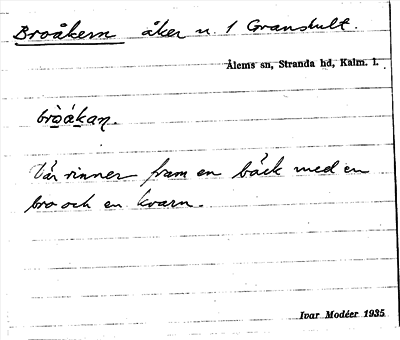 Broåkern åker n. 1 Granshult.
Ålems sn, Stranda hd, Kalm. l.
bròákaṇ.
Där rinner fram en bäck med en
bro och en kvarn.
Ivar Modéer 1935